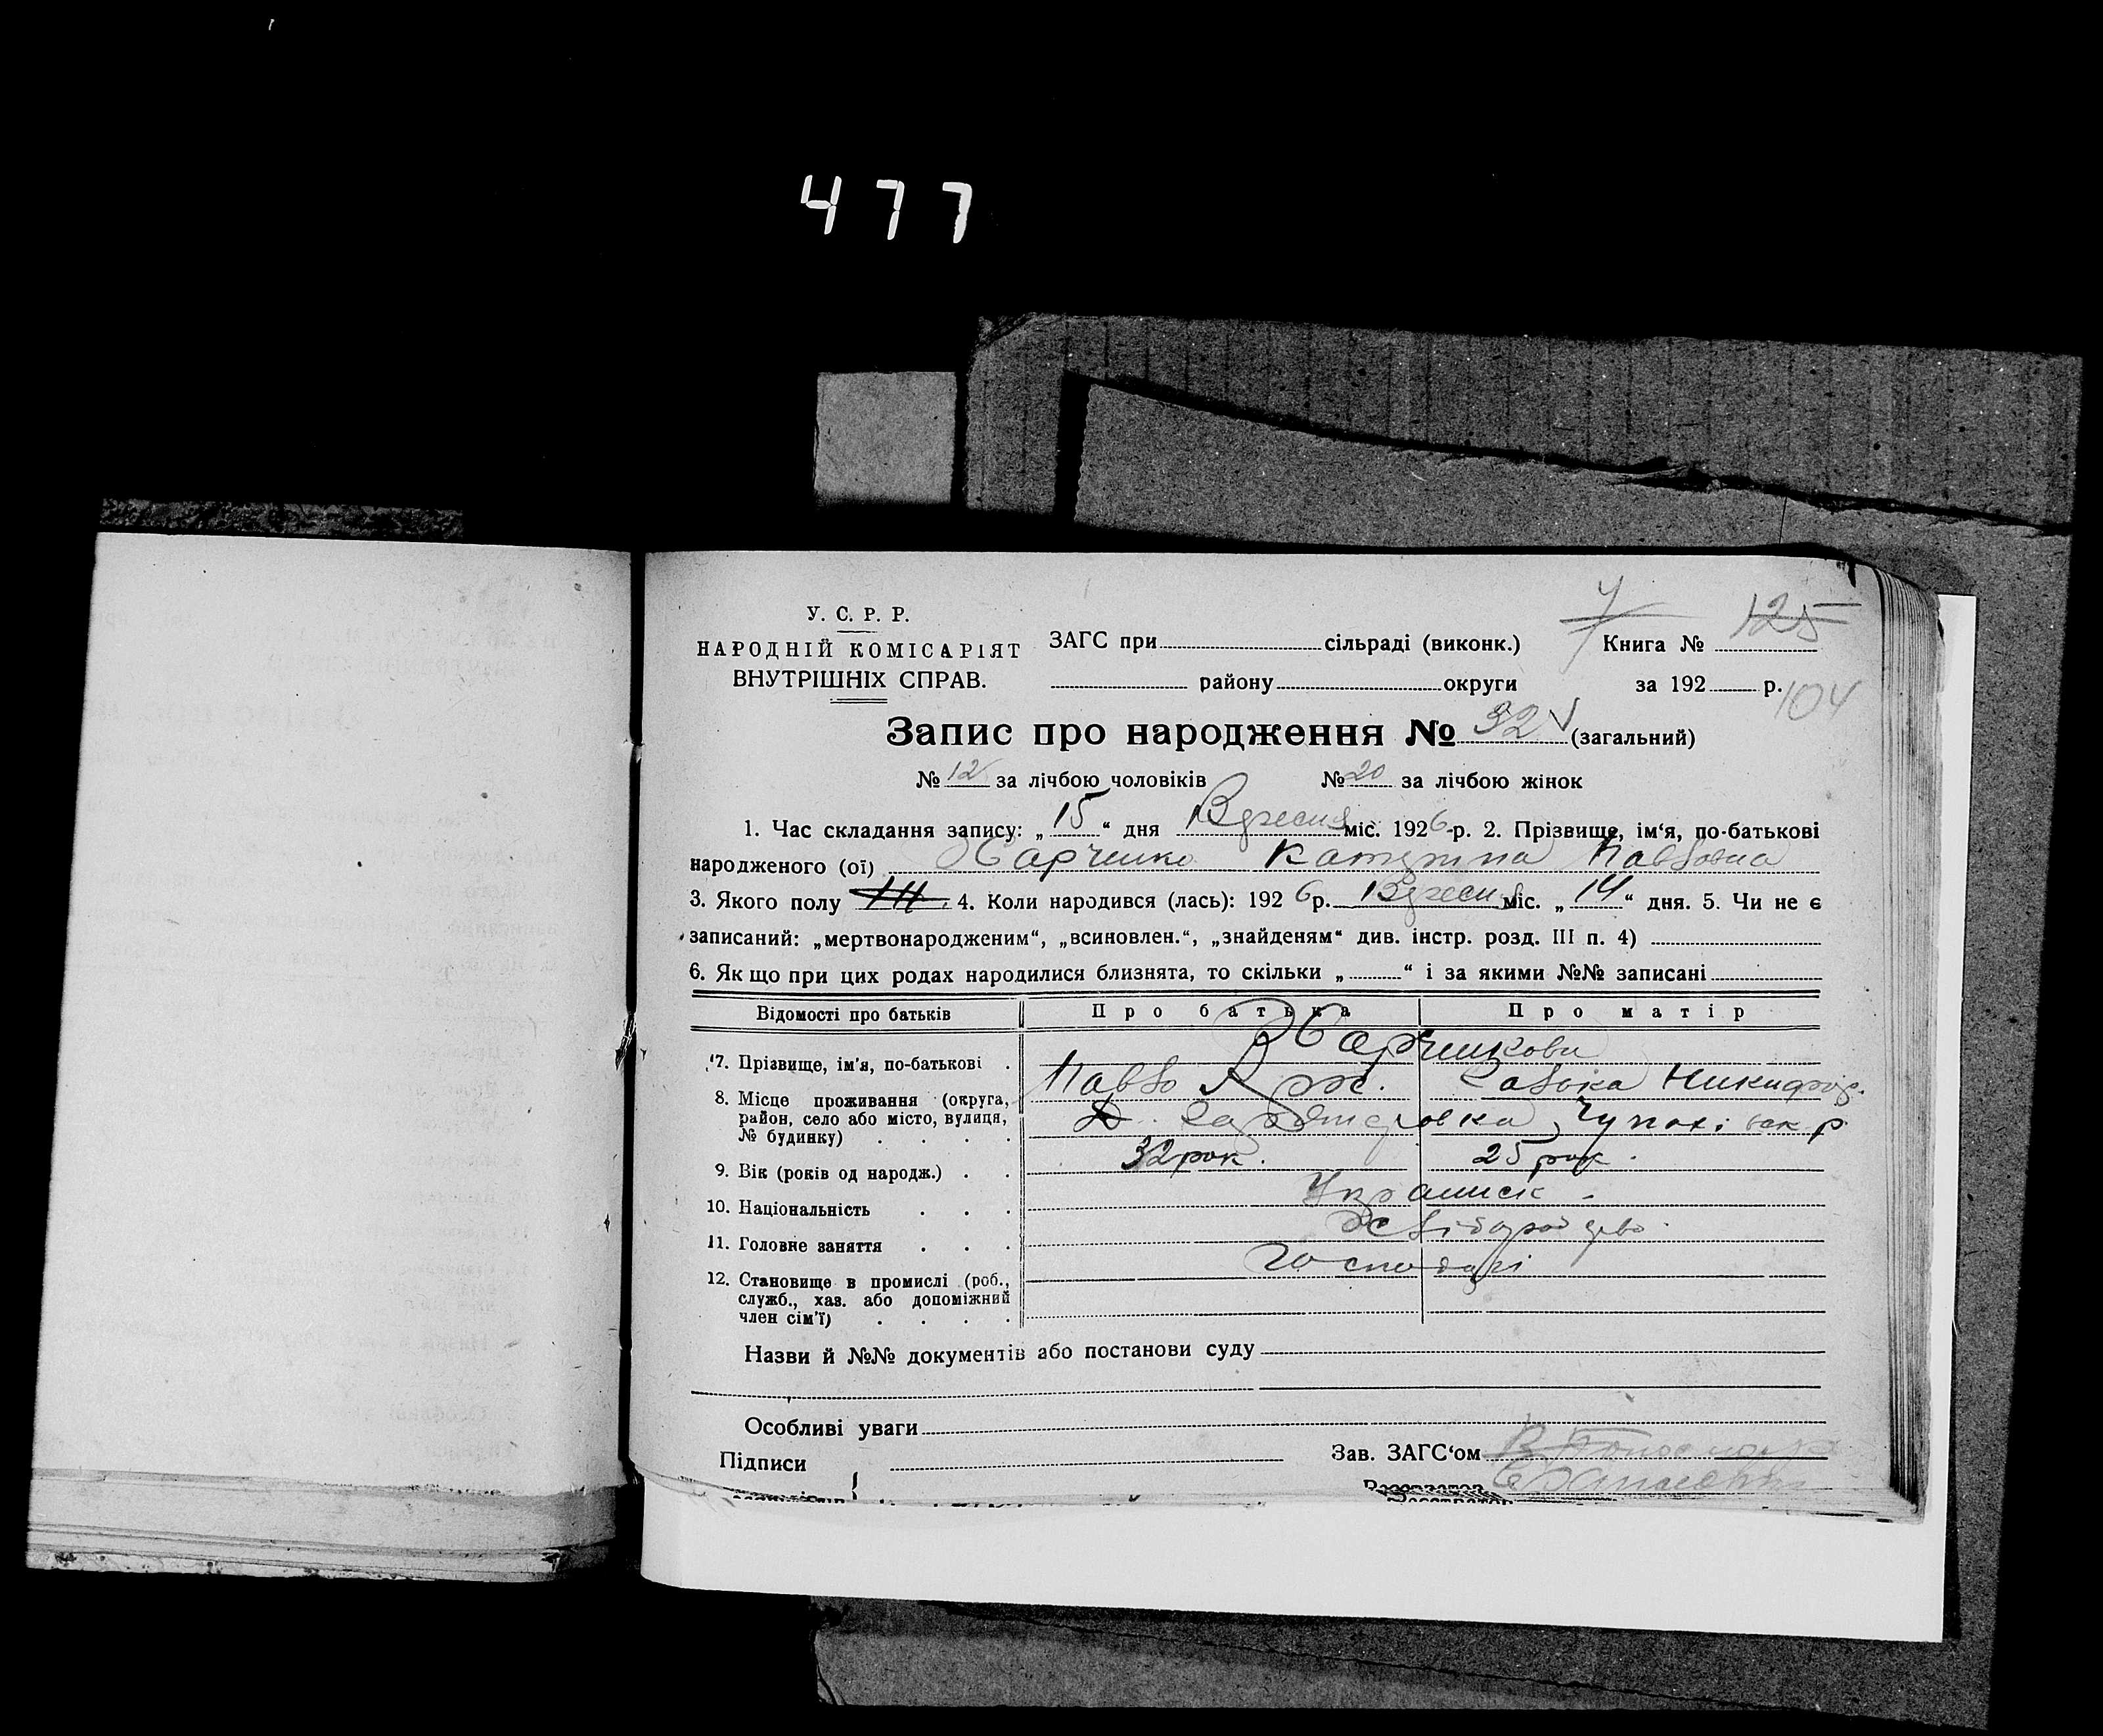 477
У. С. Р. Р.
НАРОДНІЙ КОМІСАРІЯТ
ВНУТРІШНІХ СПРАВ.
ЗАГС при сільраді (виконк.)
району округи
Книга № 125
за 192 р. 104
Запис про народження № 32 (загальний)
№ 12 за лічбою чоловіків № 20 за лічбою жінок
1. Час складання запису: „ 15 “ дня Вересня міс. 1926 р. 2. Прізвище, ім‘я, по-батькові
народженого (ої) Харченко Катерина Павловна
3. Якого полу 4. Коли народився (лась): 192 6 р. Вересня міс. „ 14 “ дня. 5. Чи не є
записаний: „мертвонародженим“, „всиновлен.“, „знайденям“ див. інстр. розд. III п. 4)
6. Як що при цих родах народилися близнята, то скільки „ “ і за якими №№ записані
Відомості про батьків Про батька Про матір
7. Прізвище, ім'я, по-батькові Харченкови
Павло Савока Никифор.
8. Місце проживання (округа,
район, село або місто, вулиця,
№ будинку)
9. Вік (років од народж.) 32 рок. 25 рок.
10. Національність Украинск
11. Головне заняття
12. Становище в промислі (роб.,
служб., хаз. або допоміжний
член сім'ї)
Господарі
Назви й №№ документів або постанови суду
Особливі уваги
Підписи Зав. ЗАГС‘ом
Реєстратор